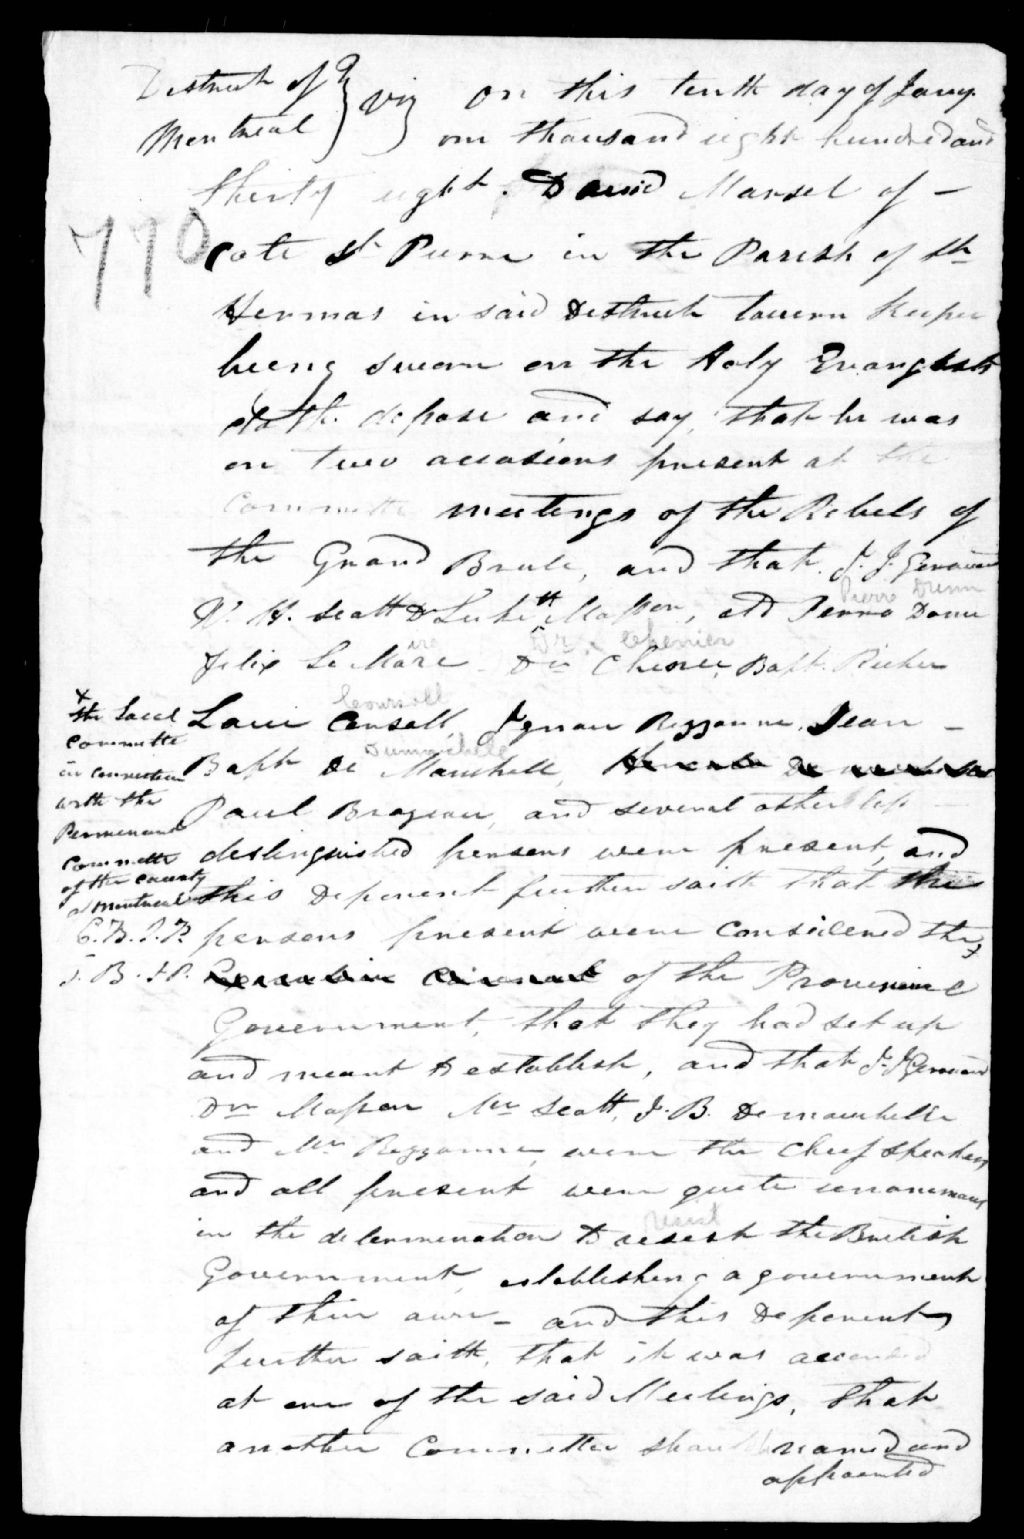 District of } viz } On this tenth day of Jany.
Montreal } one thousand eight hundred and
thirty eight. David Marsel of -
770
Cote St Pierre in the Parish of St
Hermas in said District tavern keeper
being sworn on the Holy Evangelists
doth depose and say, that he was
on two occasions present at the
Committe meetings of the Rebels of
the Grand Brule, and that J. J. Gerouard
Pierre Dumn
W. H. Scott Dr Luke Hte Masson, and Perro Doun
ire Dr. Chenier
Felix Le Mare Dr Chenei, Bapt. Richer
Coursoll
Loui Consell Ignace Rezzonne, Jean -
Dummichelle
Bapt De Maushell,
Paul Brazeau, and several other less -
distinguished persons were present, and
this Deponent further saith that the
persons present were considered the x
of the Provinince
x
the Local
Committe
in connection
with the
Permenant
Committe
of the County
of Montreal
C. B. J. P.
J. B. J P.
Government, that they had set up
and meant to establish, and that J. J. Gerouard
Dr Masson Mr Scott, J. B. Demaushelle
and Mr Rezzonne, were the Cheef Speakers
and all present were quite unanimous
resist
in the determenation to resest the British
Government, establishing a government
of their own - and this Deponent
further saith, that it was
at one of the said Meetings, that
another Committee should named and
appointed